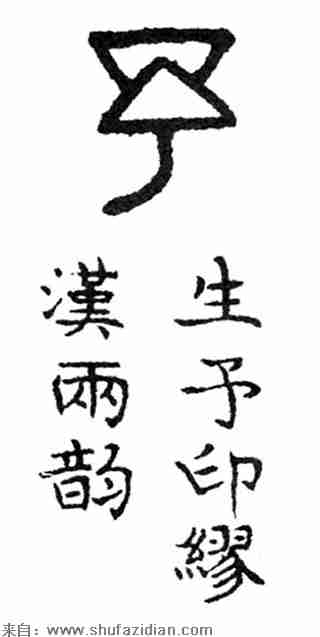 予
生予印繆
漢兩韵
来自：www.shufazidian.com